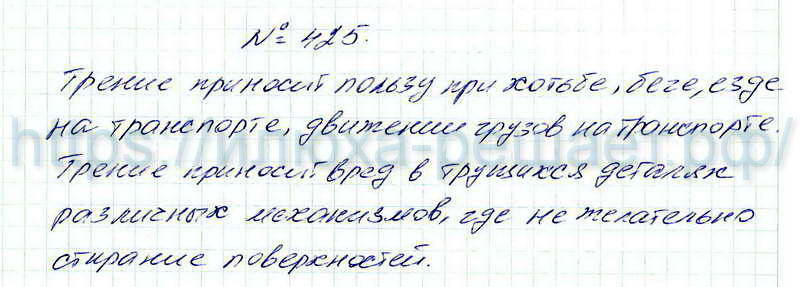 № 425.
Трение приносит пользу при хотьбе, беге, езде
на транспорте, движении грузов на транспорте.
Трение приносит вред в трущихся деталях
различных механизмов, где не желательно
стирание поверхностей.